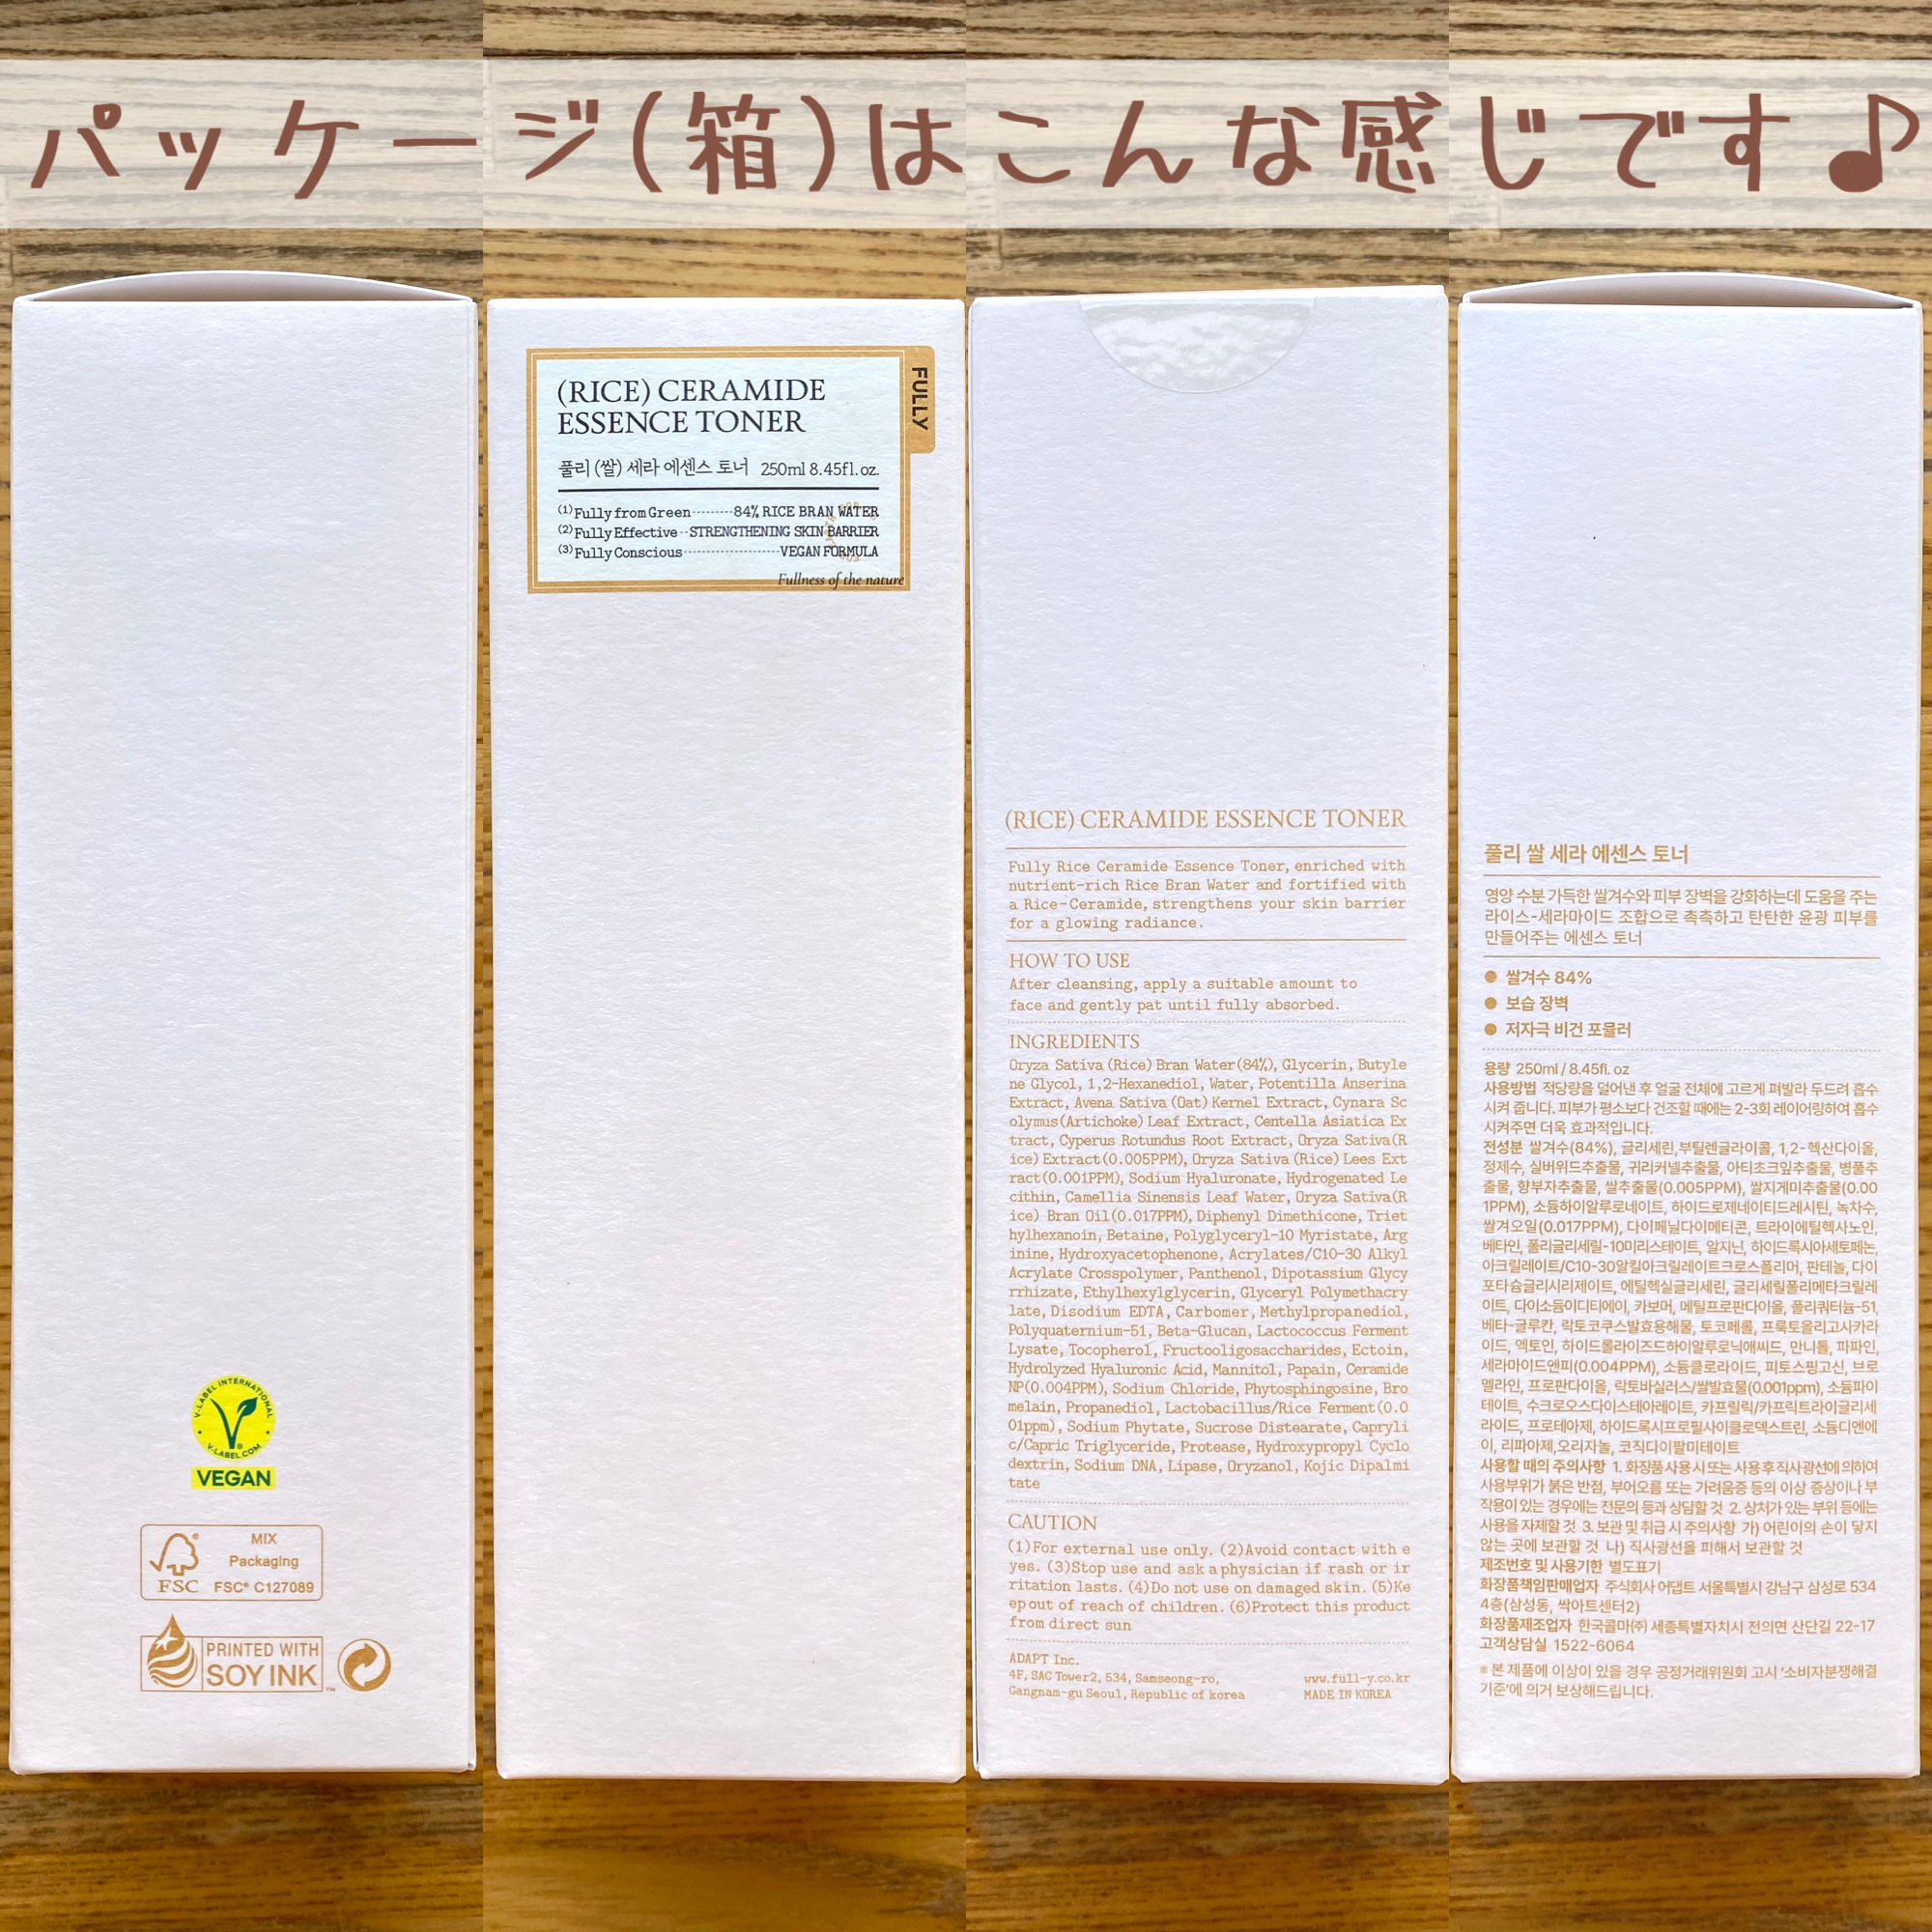 パッケージ(箱)はこんな感じです♪
V-LABEL INTERNATIONAL
V-LABEL.COM
VEGAN
FSC
MIX
Packaging
FSC® C127089
PRINTED WITH
SOY INK™
(RICE) CERAMIDE
ESSENCE TONER
FULLY
풀리 (쌀) 세라 에센스 토너 250ml 8.45fl. oz.
(1)Fully from Green---------84% RICE BRAN WATER
(2)Fully Effective--STRENGTHENING SKIN BARRIER
(3)Fully Conscious--------------------VEGAN FORMULA
Fullness of the nature
(RICE) CERAMIDE ESSENCE TONER
Fully Rice Ceramide Essence Toner, enriched with
nutrient-rich Rice Bran Water and fortified with
a Rice-Ceramide, strengthens your skin barrier
for a glowing radiance.
HOW TO USE
After cleansing, apply a suitable amount to
face and gently pat until fully absorbed.
INGREDIENTS
Oryza Sativa (Rice) Bran Water(84%), Glycerin, Butyle
ne Glycol, 1,2-Hexanediol, Water, Potentilla Anserina
Extract, Avena Sativa (Oat) Kernel Extract, Cynara Sc
olymus(Artichoke) Leaf Extract, Centella Asiatica Ex
tract, Cyperus Rotundus Root Extract, Oryza Sativa(R
ice) Extract(0.005PPM), Oryza Sativa (Rice) Lees Ext
ract(0.001PPM), Sodium Hyaluronate, Hydrogenated Le
cithin, Camellia Sinensis Leaf Water, Oryza Sativa(R
ice) Bran Oil(0.017PPM), Diphenyl Dimethicone, Triet
hylhexanoin, Betaine, Polyglyceryl-10 Myristate, Arg
inine, Hydroxyacetophenone, Acrylates/C10-30 Alkyl
Acrylate Crosspolymer, Panthenol, Dipotassium Glycy
rrhizate, Ethylhexylglycerin, Glyceryl Polymethacry
late, Disodium EDTA, Carbomer, Methylpropanediol,
Polyquaternium-51, Beta-Glucan, Lactococcus Ferment
Lysate, Tocopherol, Fructooligosaccharides, Ectoin,
Hydrolyzed Hyaluronic Acid, Mannitol, Papain, Ceramide
NP(0.004PPM), Sodium Chloride, Phytosphingosine, Bro
melain, Propanediol, Lactobacillus/Rice Ferment(0.0
01ppm), Sodium Phytate, Sucrose Distearate, Capryli
c/Capric Triglyceride, Protease, Hydroxypropyl Cyclo
dextrin, Sodium DNA, Lipase, Oryzanol, Kojic Dipalmi
tate
CAUTION
(1)For external use only. (2)Avoid contact with e
yes. (3)Stop use and ask a physician if rash or ir
ritation lasts. (4)Do not use on damaged skin. (5)Ke
ep out of reach of children. (6)Protect this product
from direct sun
ADAPT Inc.
4F, SAC Tower2, 534, Samseong-ro,
Gangnam-gu Seoul, Republic of korea
www.full-y.co.kr
MADE IN KOREA
풀리 쌀 세라 에센스 토너
영양 수분 가득한 쌀겨수와 피부 장벽을 강화하는데 도움을 주는
라이스-세라마이드 조합으로 촉촉하고 탄탄한 윤광 피부를
만들어주는 에센스 토너
● 쌀겨수 84%
● 보습 장벽
● 저자극 비건 포뮬러
용량 250ml / 8.45fl. oz
사용방법 적당량을 덜어낸 후 얼굴 전체에 고르게 펴발라 두드려 흡수
시켜 줍니다. 피부가 평소보다 건조할 때에는 2-3회 레이어링하여 흡수
시켜주면 더욱 효과적입니다.
전성분 쌀겨수(84%), 글리세린,부틸렌글라이콜, 1,2-헥산다이올,
정제수, 실버위드추출물, 귀리커넬추출물, 아티초크잎추출물, 병풀추
출물, 향부자추출물, 쌀추출물(0.005PPM), 쌀지게미추출물(0.00
1PPM), 소듐하이알루로네이트, 하이드로제네이티드레시틴, 녹차수,
쌀겨오일(0.017PPM), 다이페닐다이메티콘, 트라이에틸헥사노인,
베타인, 폴리글리세릴-10미리스테이트, 알지닌, 하이드록시아세토페논,
아크릴레이트/C10-30알킬아크릴레이트크로스폴리머, 판테놀, 다이
포타슘글리시리제이트, 에틸헥실글리세린, 글리세릴폴리메타크릴레
이트, 다이소듐이디티에이, 카보머, 메틸프로판다이올, 폴리쿼터늄-51,
베타-글루칸, 락토코쿠스발효용해물, 토코페롤, 프룩토올리고사카라
이드, 엑토인, 하이드롤라이즈드하이알루로닉애씨드, 만니톨, 파파인,
세라마이드엔피(0.004PPM), 소듐클로라이드, 피토스핑고신, 브로
멜라인, 프로판다이올, 락토바실러스/쌀발효물(0.001ppm), 소듐파이
테이트, 수크로오스다이스테아레이트, 카프릴릭/카프릭트라이글리세
라이드, 프로테아제, 하이드록시프로필사이클로덱스트린, 소듐디엔에
이, 리파아제,오리자놀, 코직다이팔미테이트
사용할 때의 주의사항 1. 화장품 사용 시 또는 사용 후 직사광선에 의하여
사용부위가 붉은 반점, 부어오름 또는 가려움증 등의 이상 증상이나 부
작용이 있는 경우에는 전문의 등과 상담할 것 2. 상처가 있는 부위 등에는
사용을 자제할 것 3. 보관 및 취급 시 주의사항 가) 어린이의 손이 닿지
않는 곳에 보관할 것 나) 직사광선을 피해서 보관할 것
제조번호 및 사용기한 별도표기
화장품책임판매업자 주식회사 어댑트 서울특별시 강남구 삼성로 534
4층(삼성동, 싹아트센터2)
화장품제조업자 한국콜마㈜ 세종특별자치시 전의면 산단길 22-17
고객상담실 1522-6064
※ 본 제품에 이상이 있을 경우 공정거래위원회 고시 '소비자분쟁해결
기준'에 의거 보상해드립니다.